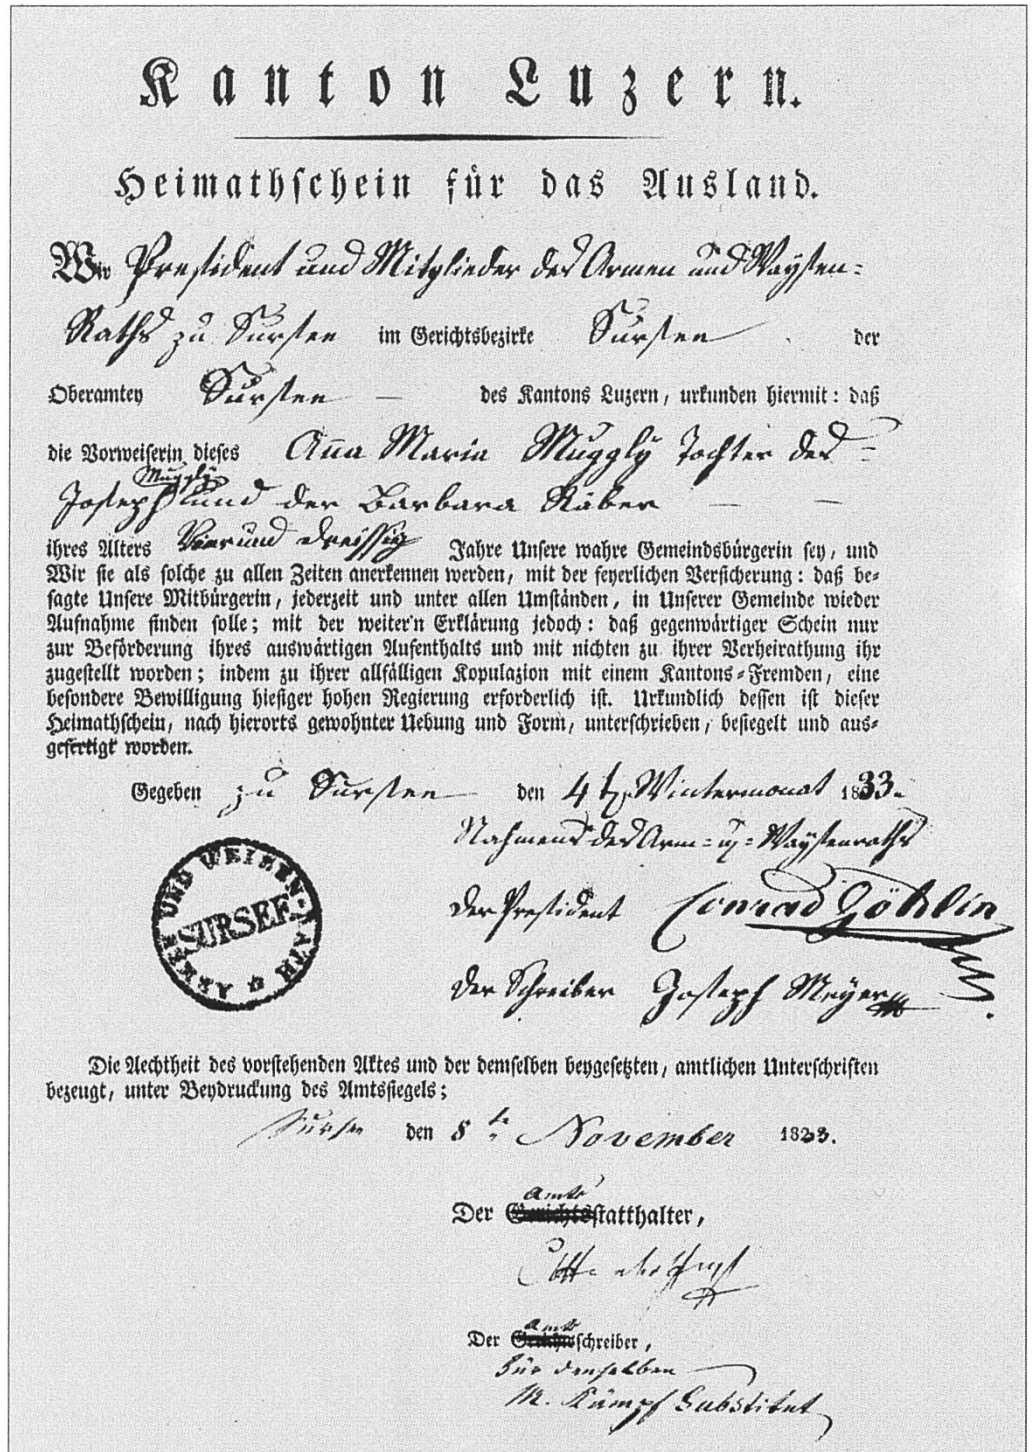 Kanton Luzern.
Heimathschein für das Ausland.
Wir President und Mitglieder des Armen und Waysen-
Raths zu Sursee im Gerichtsbezirke Sursee der
Oberamtey Sursee des Kantons Luzern, urkunden hiermit: daß
die Vorweiserin dieses Aña Maria Muggly Tochter des
Muggly
Joseph und der Barbara Räber
ihres Alters Vier und dreissig Jahre Unsere wahre Gemeindsbürgerin sey, und
Wir sie als solche zu allen Zeiten anerkennen werden, mit der feyerlichen Versicherung: daß be-
sagte Unsere Mitbürgerin, jederzeit und unter allen Umständen, in Unserer Gemeinde wieder
Aufnahme finden solle; mit der weiter'n Erklärung jedoch: daß gegenwärtiger Schein nur
zur Beförderung ihres auswärtigen Aufenthalts und mit nichten zu ihrer Verheirathung ihr
zugestellt worden; indem zu ihrer allfälligen Kopulazion mit einem Kantons-Fremden, eine
besondere Bewilligung hiesiger hohen Regierung erforderlich ist. Urkundlich dessen ist dieser
Heimathschein, nach hierorts gewohnter Uebung und Form, unterschrieben, besiegelt und aus-
gefertigt worden.
Gegeben zu Sursee den 4 Wintermonat 1833.
Nahmens des Arm- u. Waysenraths
der President Conrad
der Schreiber Joseph Meyer
ARMEN UND WEISEN-RATH
SURSEE
Die Aechtheit des vorstehenden Aktes und der demselben beygesetzten, amtlichen Unterschriften
bezeugt, unter Beydruckung des Amtssiegels;
Sursee den 8 November 1833.
Amts
Der Gerichtsstatthalter,
Amts
Der Gerichtsschreiber,
für denselben
Substitut